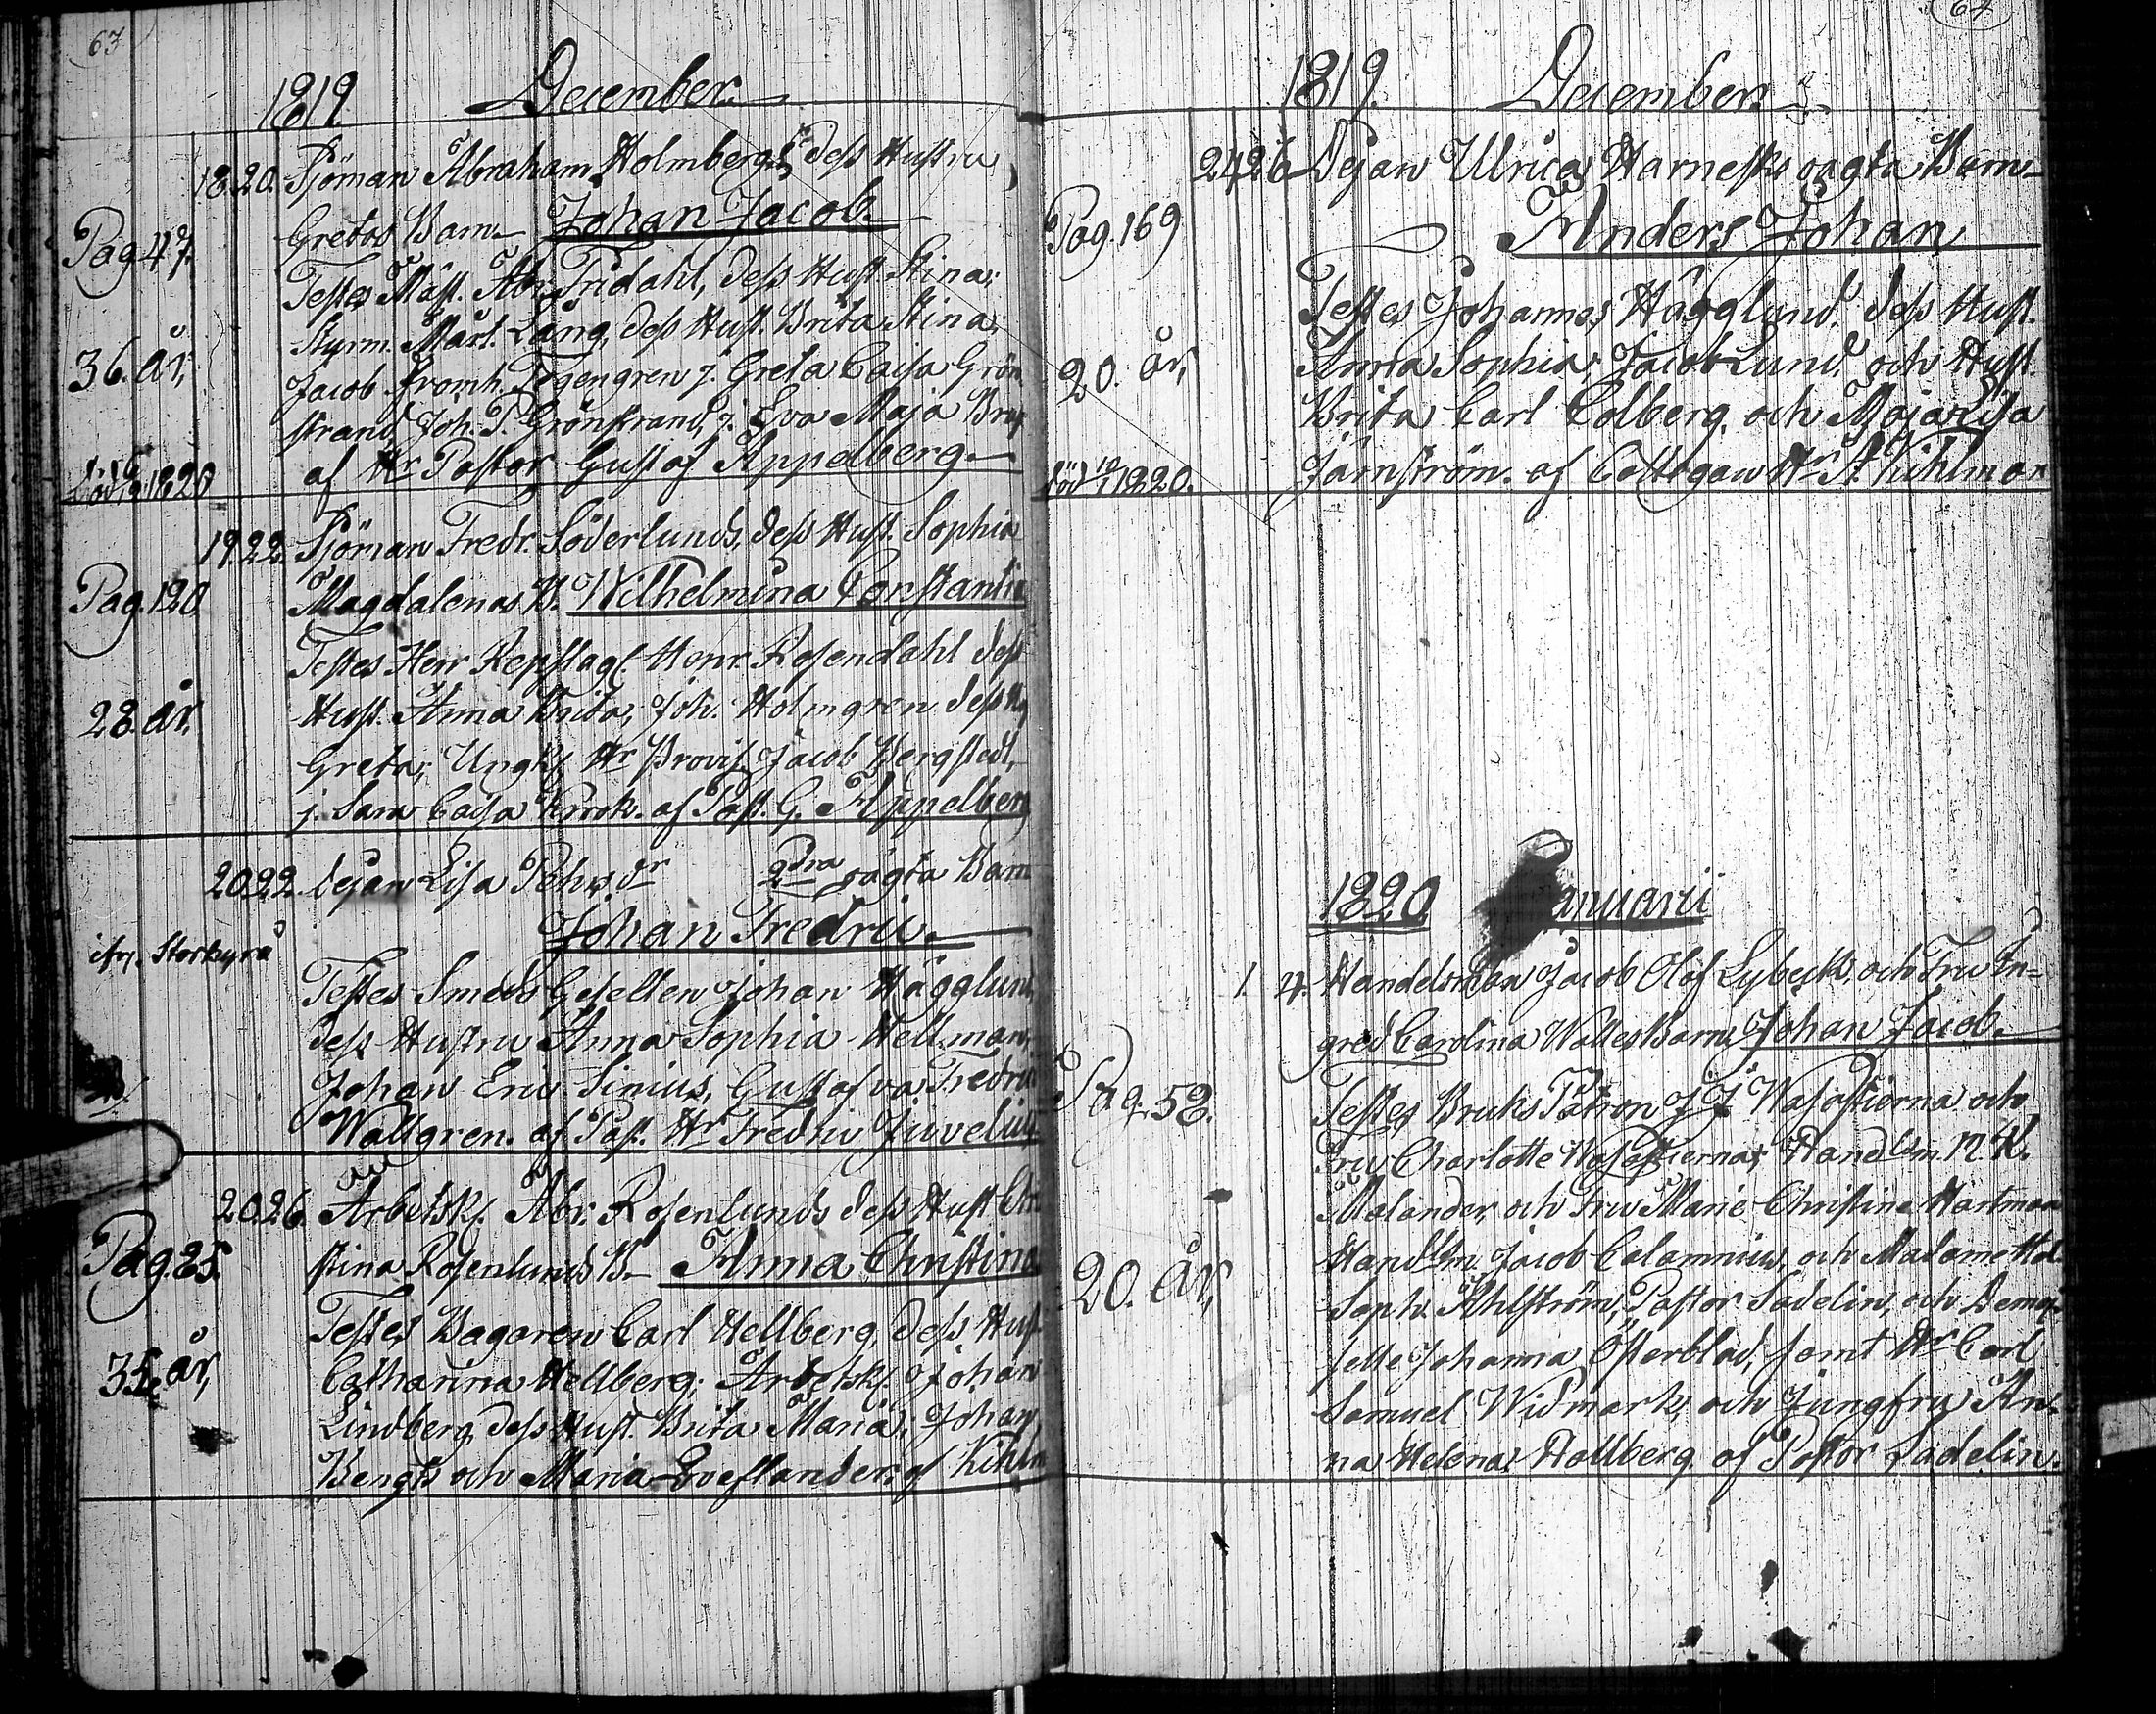 63
1819. December.
18. 20. Sjöman Abraham Holmbergs, dess Hustru
Pag. 47. Gretas Barn Johan Jacob.
Testes Mäst. Abr. Tridahl, dess Hust. Stina;
Styrm. Mårt. Lång, dess Hust. Brita Stina,
36. år, Jacob Fromh. Tegengren j. Greta Caisa Grön
strand, Joh. P. Grönstrand, j. Eva Maja
död 1820 af Hr Pastor Gustaf Appelberg.
19. 22. Sjöman Fredr. Söderlunds, dess Hust. Sophia
Pag. 120 Magdalenas B. Wilhelmina Constantia
Testes Herr Repslag. Henr. Rosendahl dess
28. år, Hust. Anna Brita, Joh. Holmgren dess
Greta; Ungk. Hr Provis. Jacob Bergstedt,
j. Sara Caisa Krook. af Past. G. Appelberg
20. 22. Pejan Lisa Pehrsdr 2dra oägta Barn
ifrån Storkyro Johan Fredric.
Testes Smeds Gesellen Johan Hägglund,
dess Hustru Anna Sophia Hellman,
Johan Eric Sinius, Gustafva Fredrica
Wallgren. af Past. Hr Fredric Juvelius
20. 26. Arbetsk. Abr. Rosenlunds dess Hust Chri
Pag. 25. stina Rosenlunds B. Anna Christina
Testes Bagaren Carl Hellberg, dess Hust.
35 år, Catharina Hellberg; Arbetsk. Johan
Lindberg, dess Hust. Brita Maria; Johan
Bengts och Maria af Kihlm
64
1819. December.
24. 26 Pejan Ulrica Harnesks oägta Barn
Pag. 169 Anders Johan
Testes Johannes Hägglund. dess Hust.
20. år, Anna Sophia; Jacob Lund, och Hust.
Brita Carl Colberg, och Maja Lisa
död 1820. Järnström. af Collegan Hr A. Kihlman
1820. Januarii
1. 4. Handelsman Jacob Olof Lybecks, och Fru In-
gred Carolina Walles Barn Johan Jacob.
Pag. 52. Testes Bruks Patron J J Wasastierna och
Fru Charlotte Wasastierna, Handlsm.
Malander, och Fru Marie Christine Hartman
Handlsm. Jacob Calamnius, och Madame Hed.
20. år, Soph. Ahlström, Pastor Sadelin, och Demoi-
selle Johanna Österblad, samt Hr Carl
Samuel Widmark, och Jungfru An-
na Helena Hallberg af Pastor Sadelin.